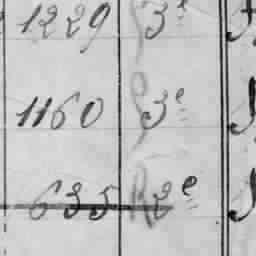 1229 3e
1160 3e
635 2e